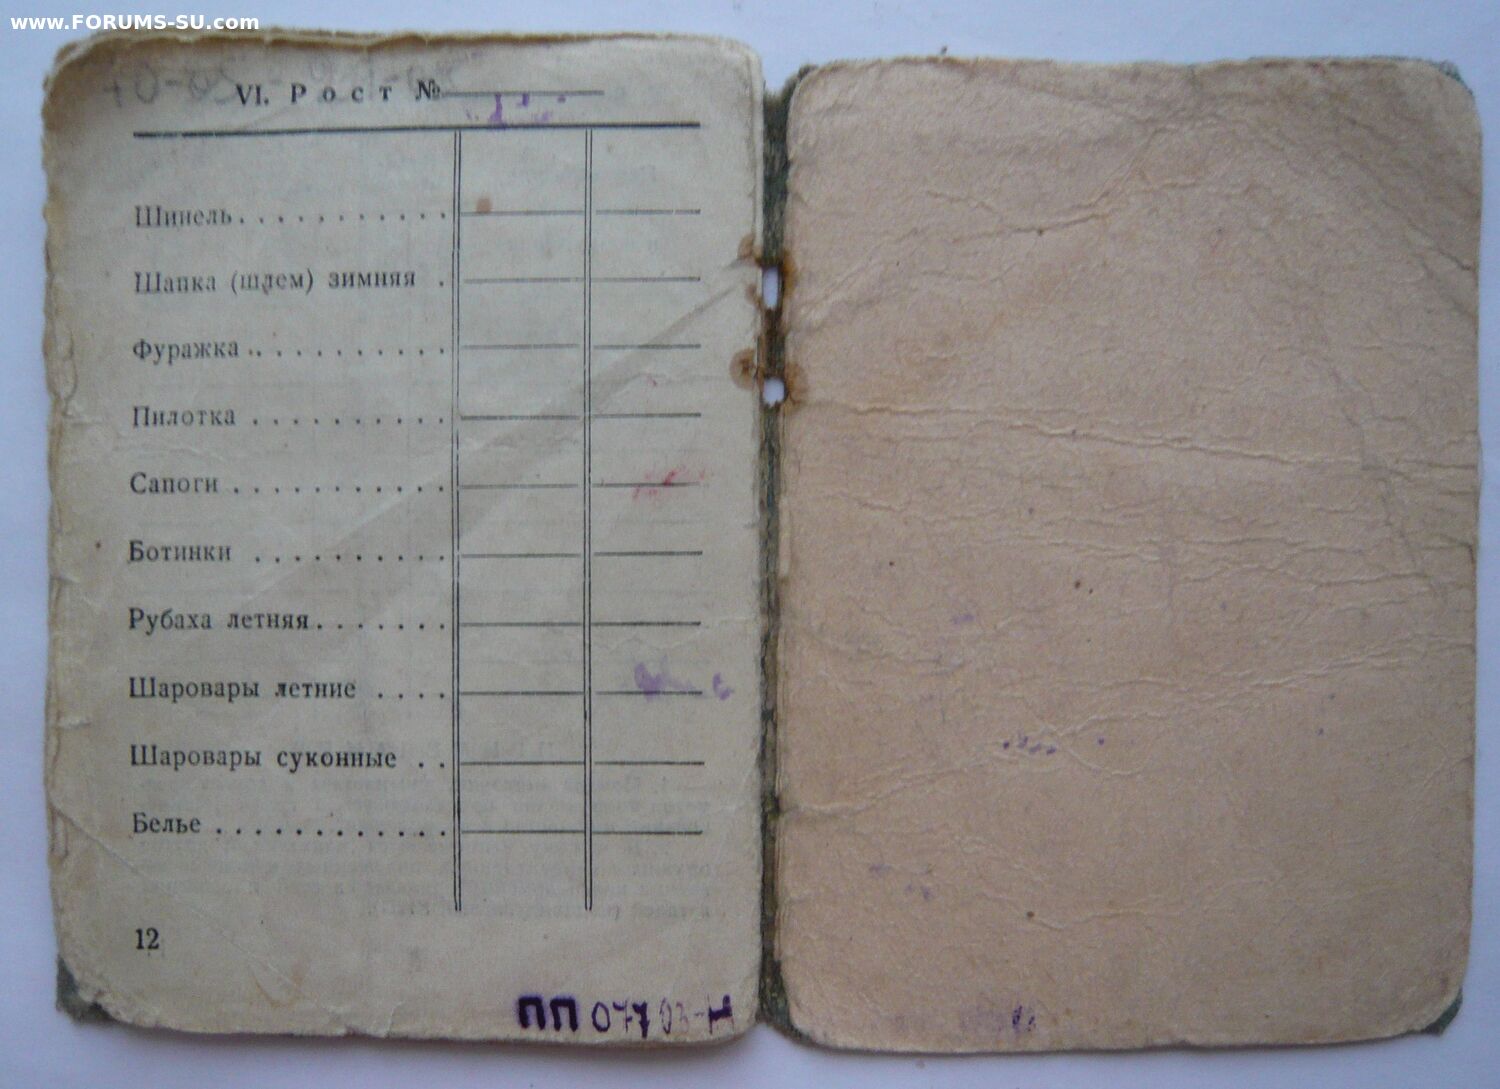 www.FORUMS-SU.com
VI. Рост №
Шинель
Шапка (шлем) зимняя
Фуражка
Пилотка
Сапоги
Ботинки
Рубаха летняя
Шаровары летние
Шаровары суконные
Белье
12
ПП 07703-Н